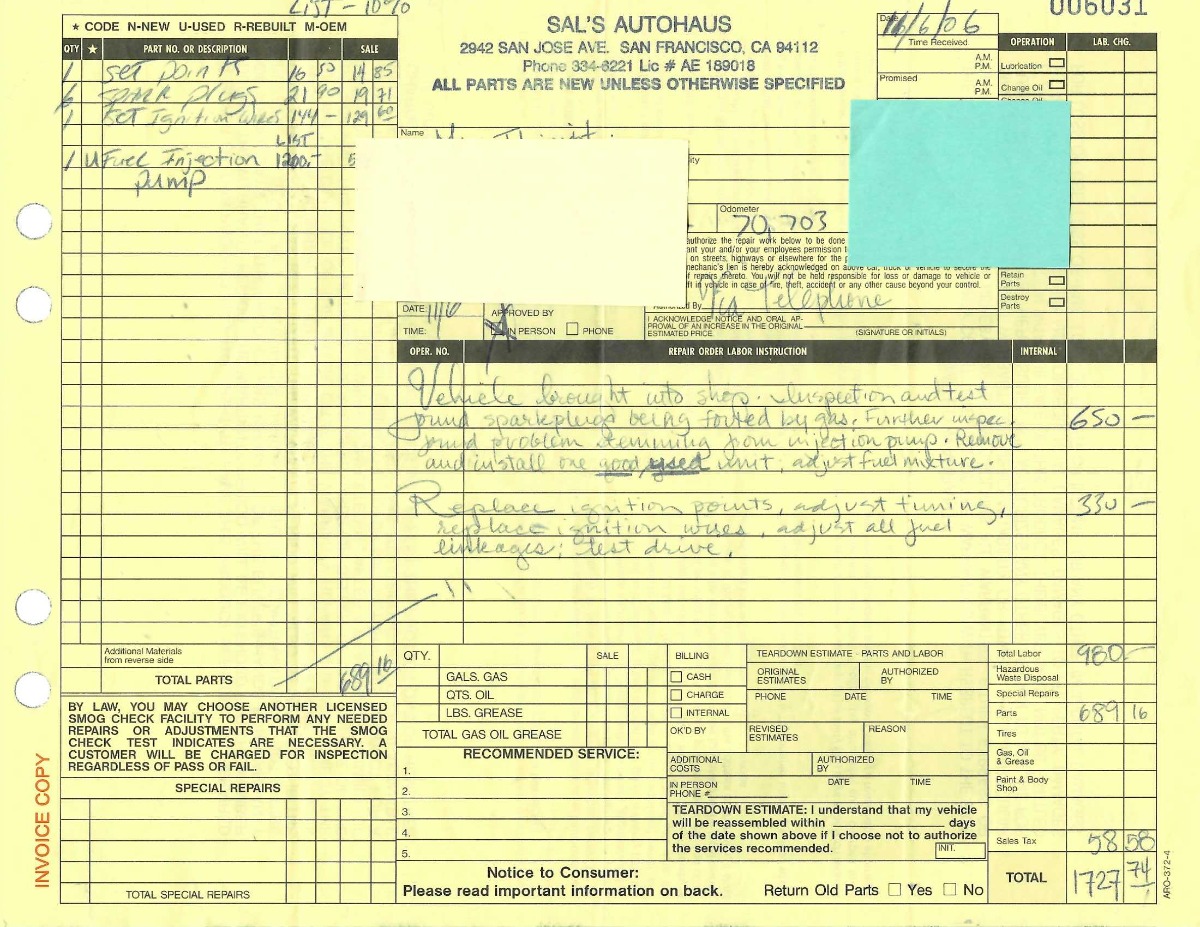 LIST - 10%
006031
★ CODE N-NEW U-USED R-REBUILT M-OEM
QTY ★ PART NO. OR DESCRIPTION SALE
1 set points 16 50 14 85
6 spark plugs 21 90 19 71
1 set Ignition wires 144 - 129 60
LIST
1 U Fuel Injection 1200.-
pump
SAL'S AUTOHAUS
2942 SAN JOSE AVE. SAN FRANCISCO, CA 94112
Phone 334-6221 Lic # AE 189018
ALL PARTS ARE NEW UNLESS OTHERWISE SPECIFIED
Date 11/6/06
Time Received
A.M.
P.M.
Promised
A.M.
P.M.
OPERATION LAB. CHG.
Lubrication
Change Oil
Name
Odometer
70,703
authorize the repair work below to be done
your and/or your employees permission to
on streets, highways or elsewhere for the
mechanic's lien is hereby acknowledged on above car, truck or vehicle to secure the
repairs thereto. You will not be held responsible for loss or damage to vehicle or
in vehicle in case of fire, theft, accident or any other cause beyond your control.
By Via Telephone
Retain
Parts
Destroy
Parts
DATE: 11/6 APPROVED BY
TIME: IN PERSON PHONE
I ACKNOWLEDGE NOTICE AND ORAL AP-
PROVAL OF AN INCREASE IN THE ORIGINAL
ESTIMATED PRICE. (SIGNATURE OR INITIALS)
OPER. NO. REPAIR ORDER LABOR INSTRUCTION INTERNAL
Vehicle brought into shop. Inspection and test
found sparkplugs being fouled by gas. Further inspec. 650 -
found problem stemming from injection pump. Remove
and install one good used unit; adjust fuel mixture.
Replace ignition points, adjust timing, 330 -
replace ignition wires, adjust all fuel
linkages; test drive.
Additional Materials
from reverse side
TOTAL PARTS 689 16
BY LAW, YOU MAY CHOOSE ANOTHER LICENSED
SMOG CHECK FACILITY TO PERFORM ANY NEEDED
REPAIRS OR ADJUSTMENTS THAT THE SMOG
CHECK TEST INDICATES ARE NECESSARY. A
CUSTOMER WILL BE CHARGED FOR INSPECTION
REGARDLESS OF PASS OR FAIL.
SPECIAL REPAIRS
TOTAL SPECIAL REPAIRS
INVOICE COPY
QTY. SALE
GALS. GAS
QTS. OIL
LBS. GREASE
TOTAL GAS OIL GREASE
RECOMMENDED SERVICE:
1.
2.
3.
4.
5.
BILLING
CASH
CHARGE
INTERNAL
TEARDOWN ESTIMATE - PARTS AND LABOR
ORIGINAL
ESTIMATES
AUTHORIZED
BY
PHONE DATE TIME
OK'D BY
REVISED
ESTIMATES
REASON
ADDITIONAL
COSTS
AUTHORIZED
BY
IN PERSON
PHONE #
DATE TIME
TEARDOWN ESTIMATE: I understand that my vehicle
will be reassembled within ____ days
of the date shown above if I choose not to authorize
the services recommended.
INIT.
Notice to Consumer:
Please read important information on back.
Return Old Parts Yes No
Total Labor 980 -
Hazardous
Waste Disposal
Special Repairs
Parts 689 16
Tires
Gas, Oil
& Grease
Paint & Body
Shop
Sales Tax 58 58
TOTAL 1727 74
ARO-372-4